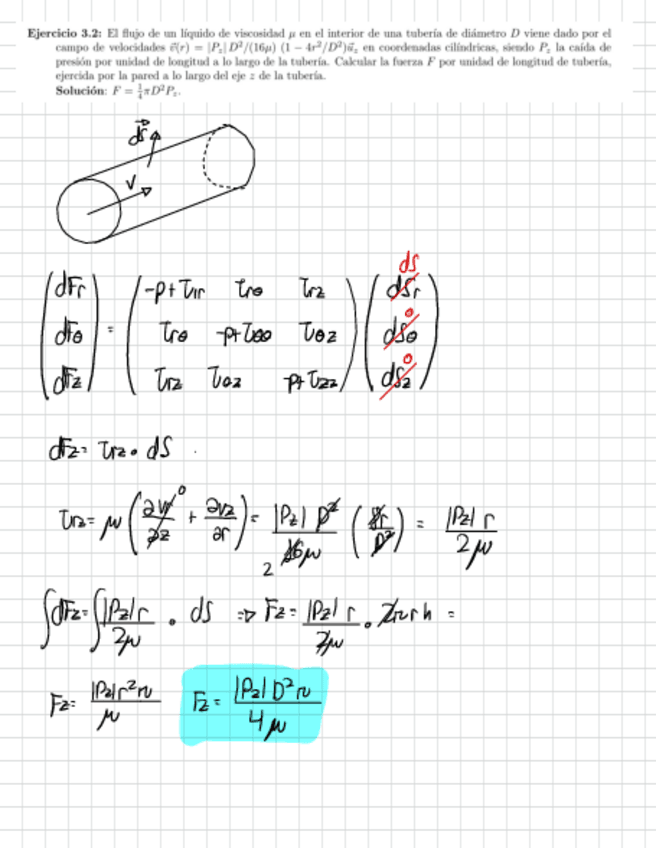 Ejercicio 3.2: El flujo de un líquido de viscosidad μ en el interior de una tubería de diámetro D viene dado por el
campo de velocidades v⃗(r) = |P_z| D²/(16μ) (1 − 4r²/D²)u⃗_z en coordenadas cilíndricas, siendo P_z la caída de
presión por unidad de longitud a lo largo de la tubería. Calcular la fuerza F por unidad de longitud de tubería,
ejercida por la pared a lo largo del eje z de la tubería.
Solución: F = ¼πD²P_z.
dS⃗
V
dS
(dFr) = (-p+τrr τrθ τrz) (dSr)
(dFθ) (τrθ -p+τθθ τθz) (dSθ) 0
(dFz) (τrz τθz p+τzz) (dSz) 0
dFz = τrz · dS
τrz = μ (∂vr/∂z 0 + ∂vz/∂r) = |Pz| D²/16μ 2 (8r/D²) = |Pz| r/2μ
∫dFz = ∫|Pz|r/2μ · dS => Fz = |Pz| r/2μ · 2πrh =
Fz = |Pz|r²π/μ Fz = |Pz| D²π/4μ